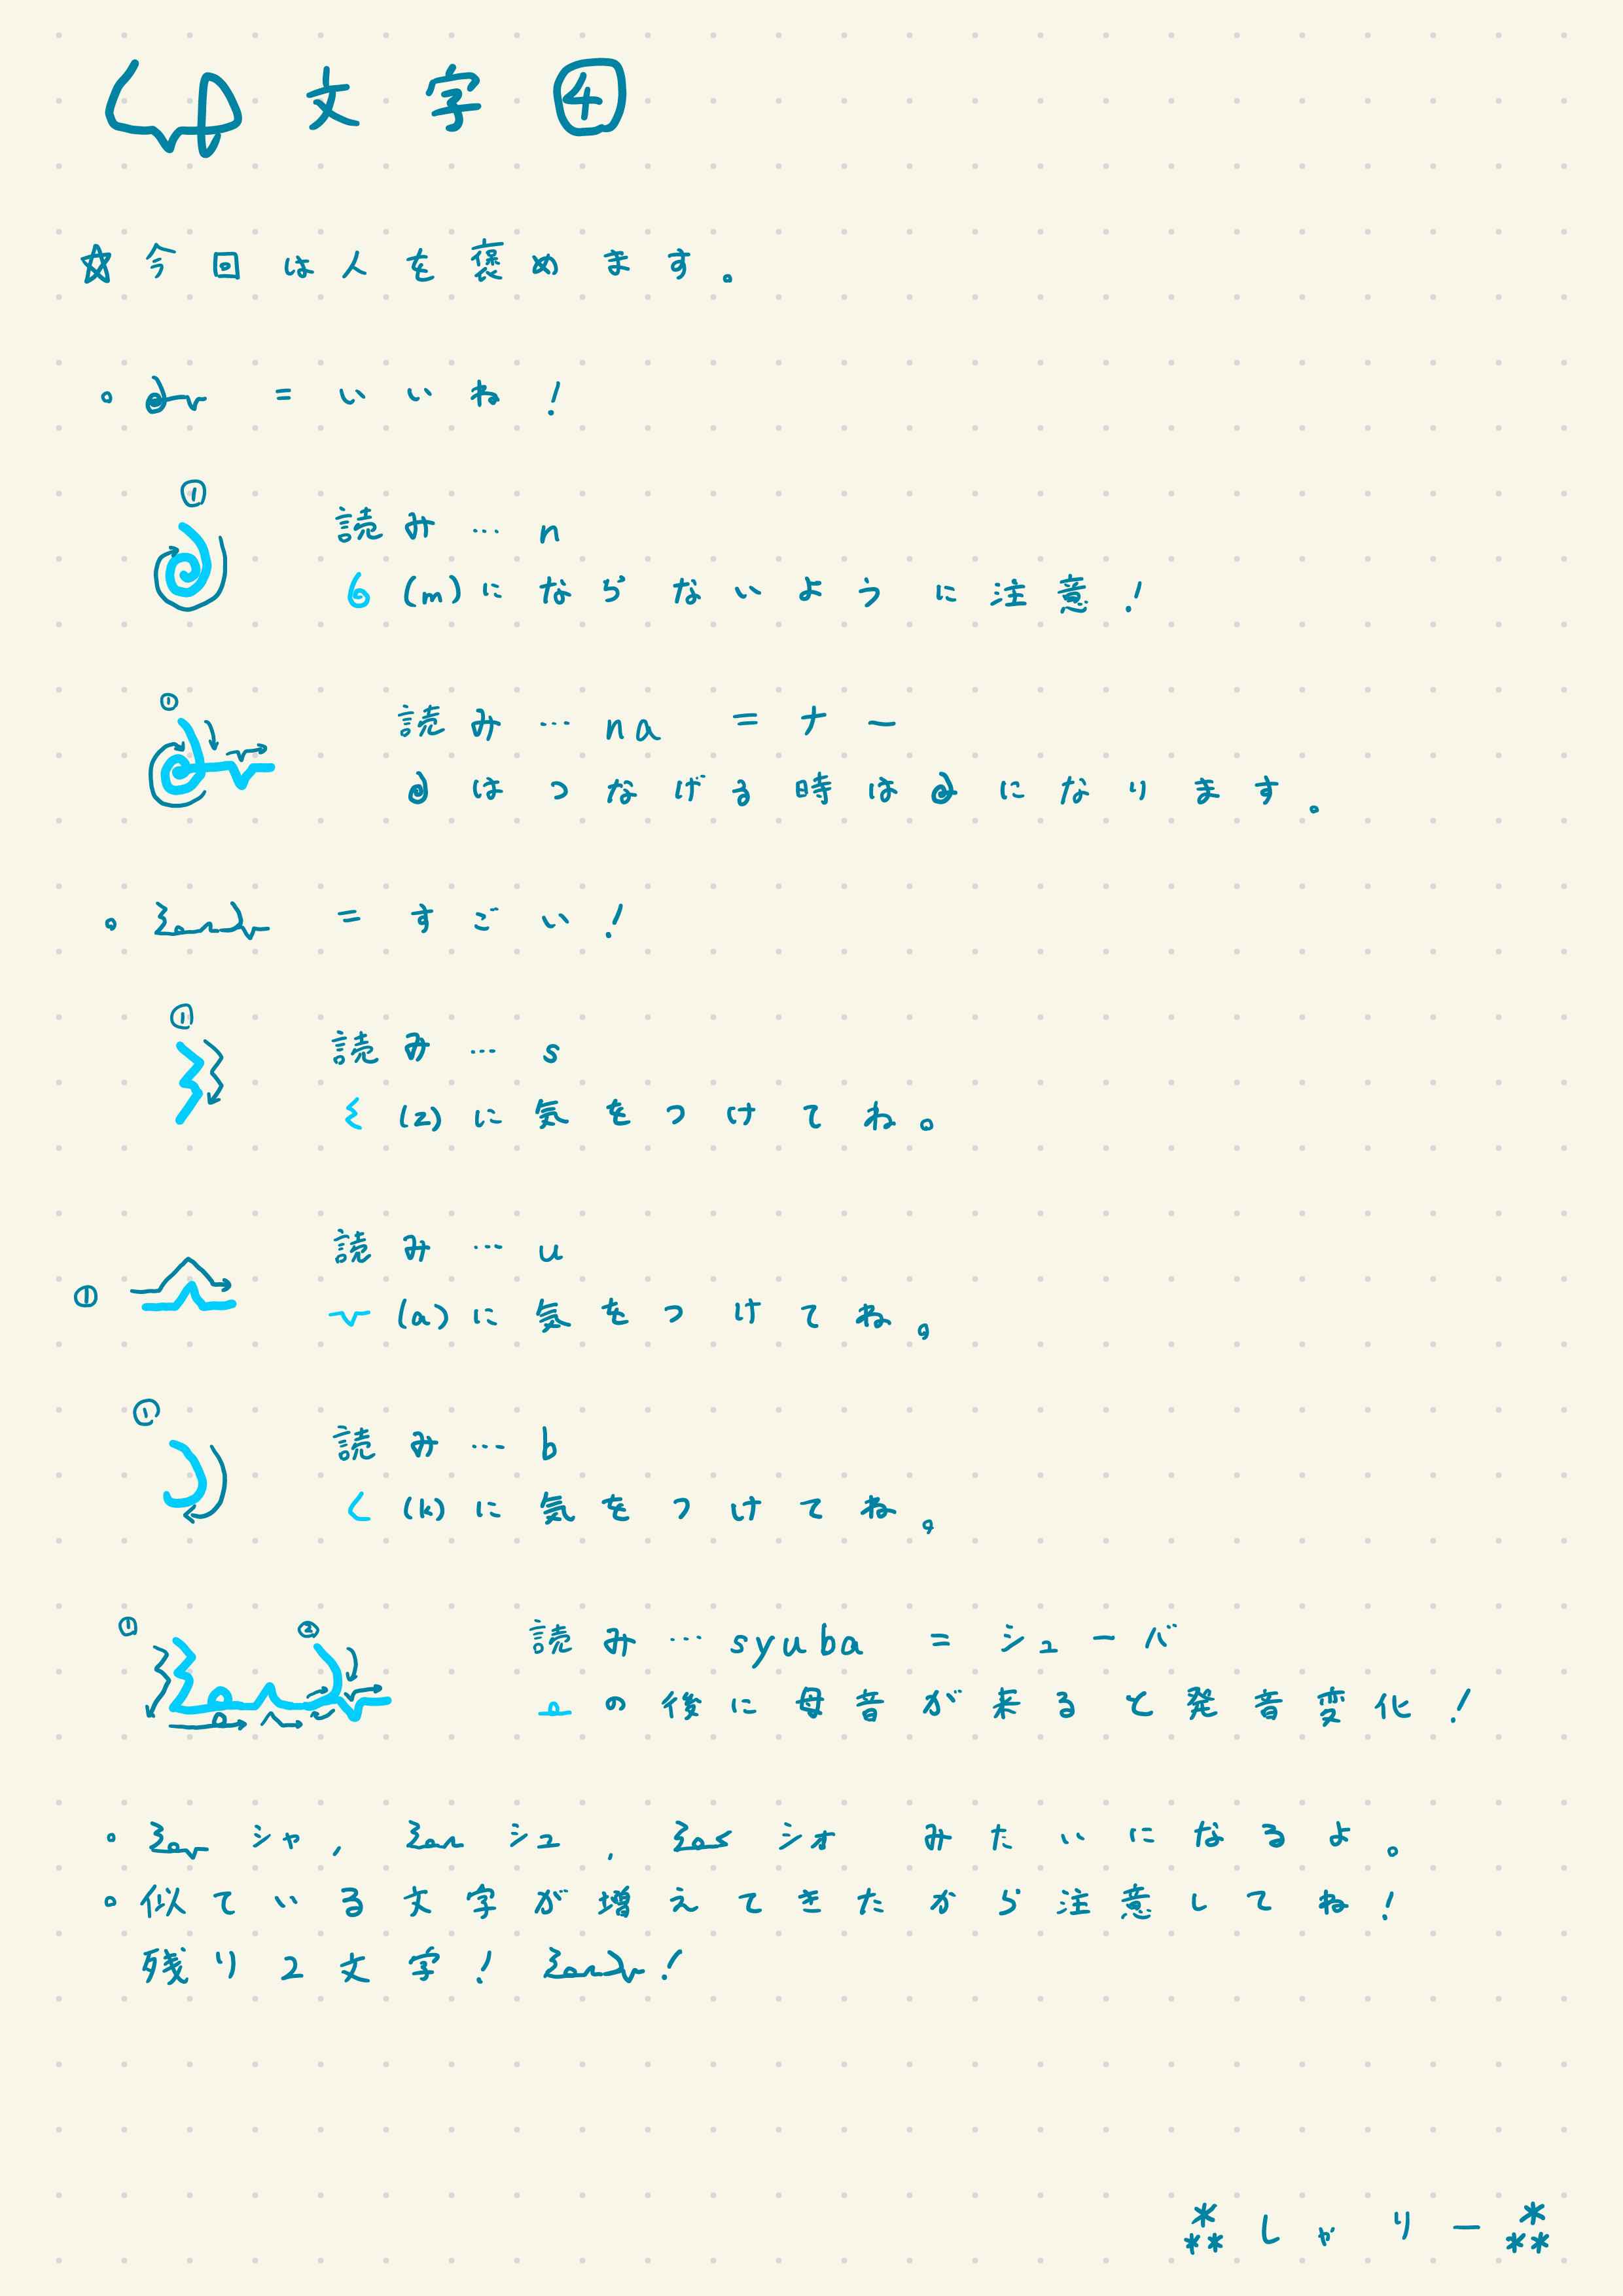 文字④
☆今回は人を褒めます。
= いいね!
①
読み…n
(m)にならないように注意!
①
読み…na = ナー
はつなげる時はになります。
= すごい!
①
読み…s
(z)に気をつけてね。
読み…u
①
(a)に気をつけてね。
①
読み…b
(k)に気をつけてね。
① ②
読み…syuba = シューバ
の後に母音が来ると発音変化!
シャ, シュ, ショ みたいになるよ。
似ている文字が増えてきたから注意してね!
残り2文字! !
⁂しゃりー⁂